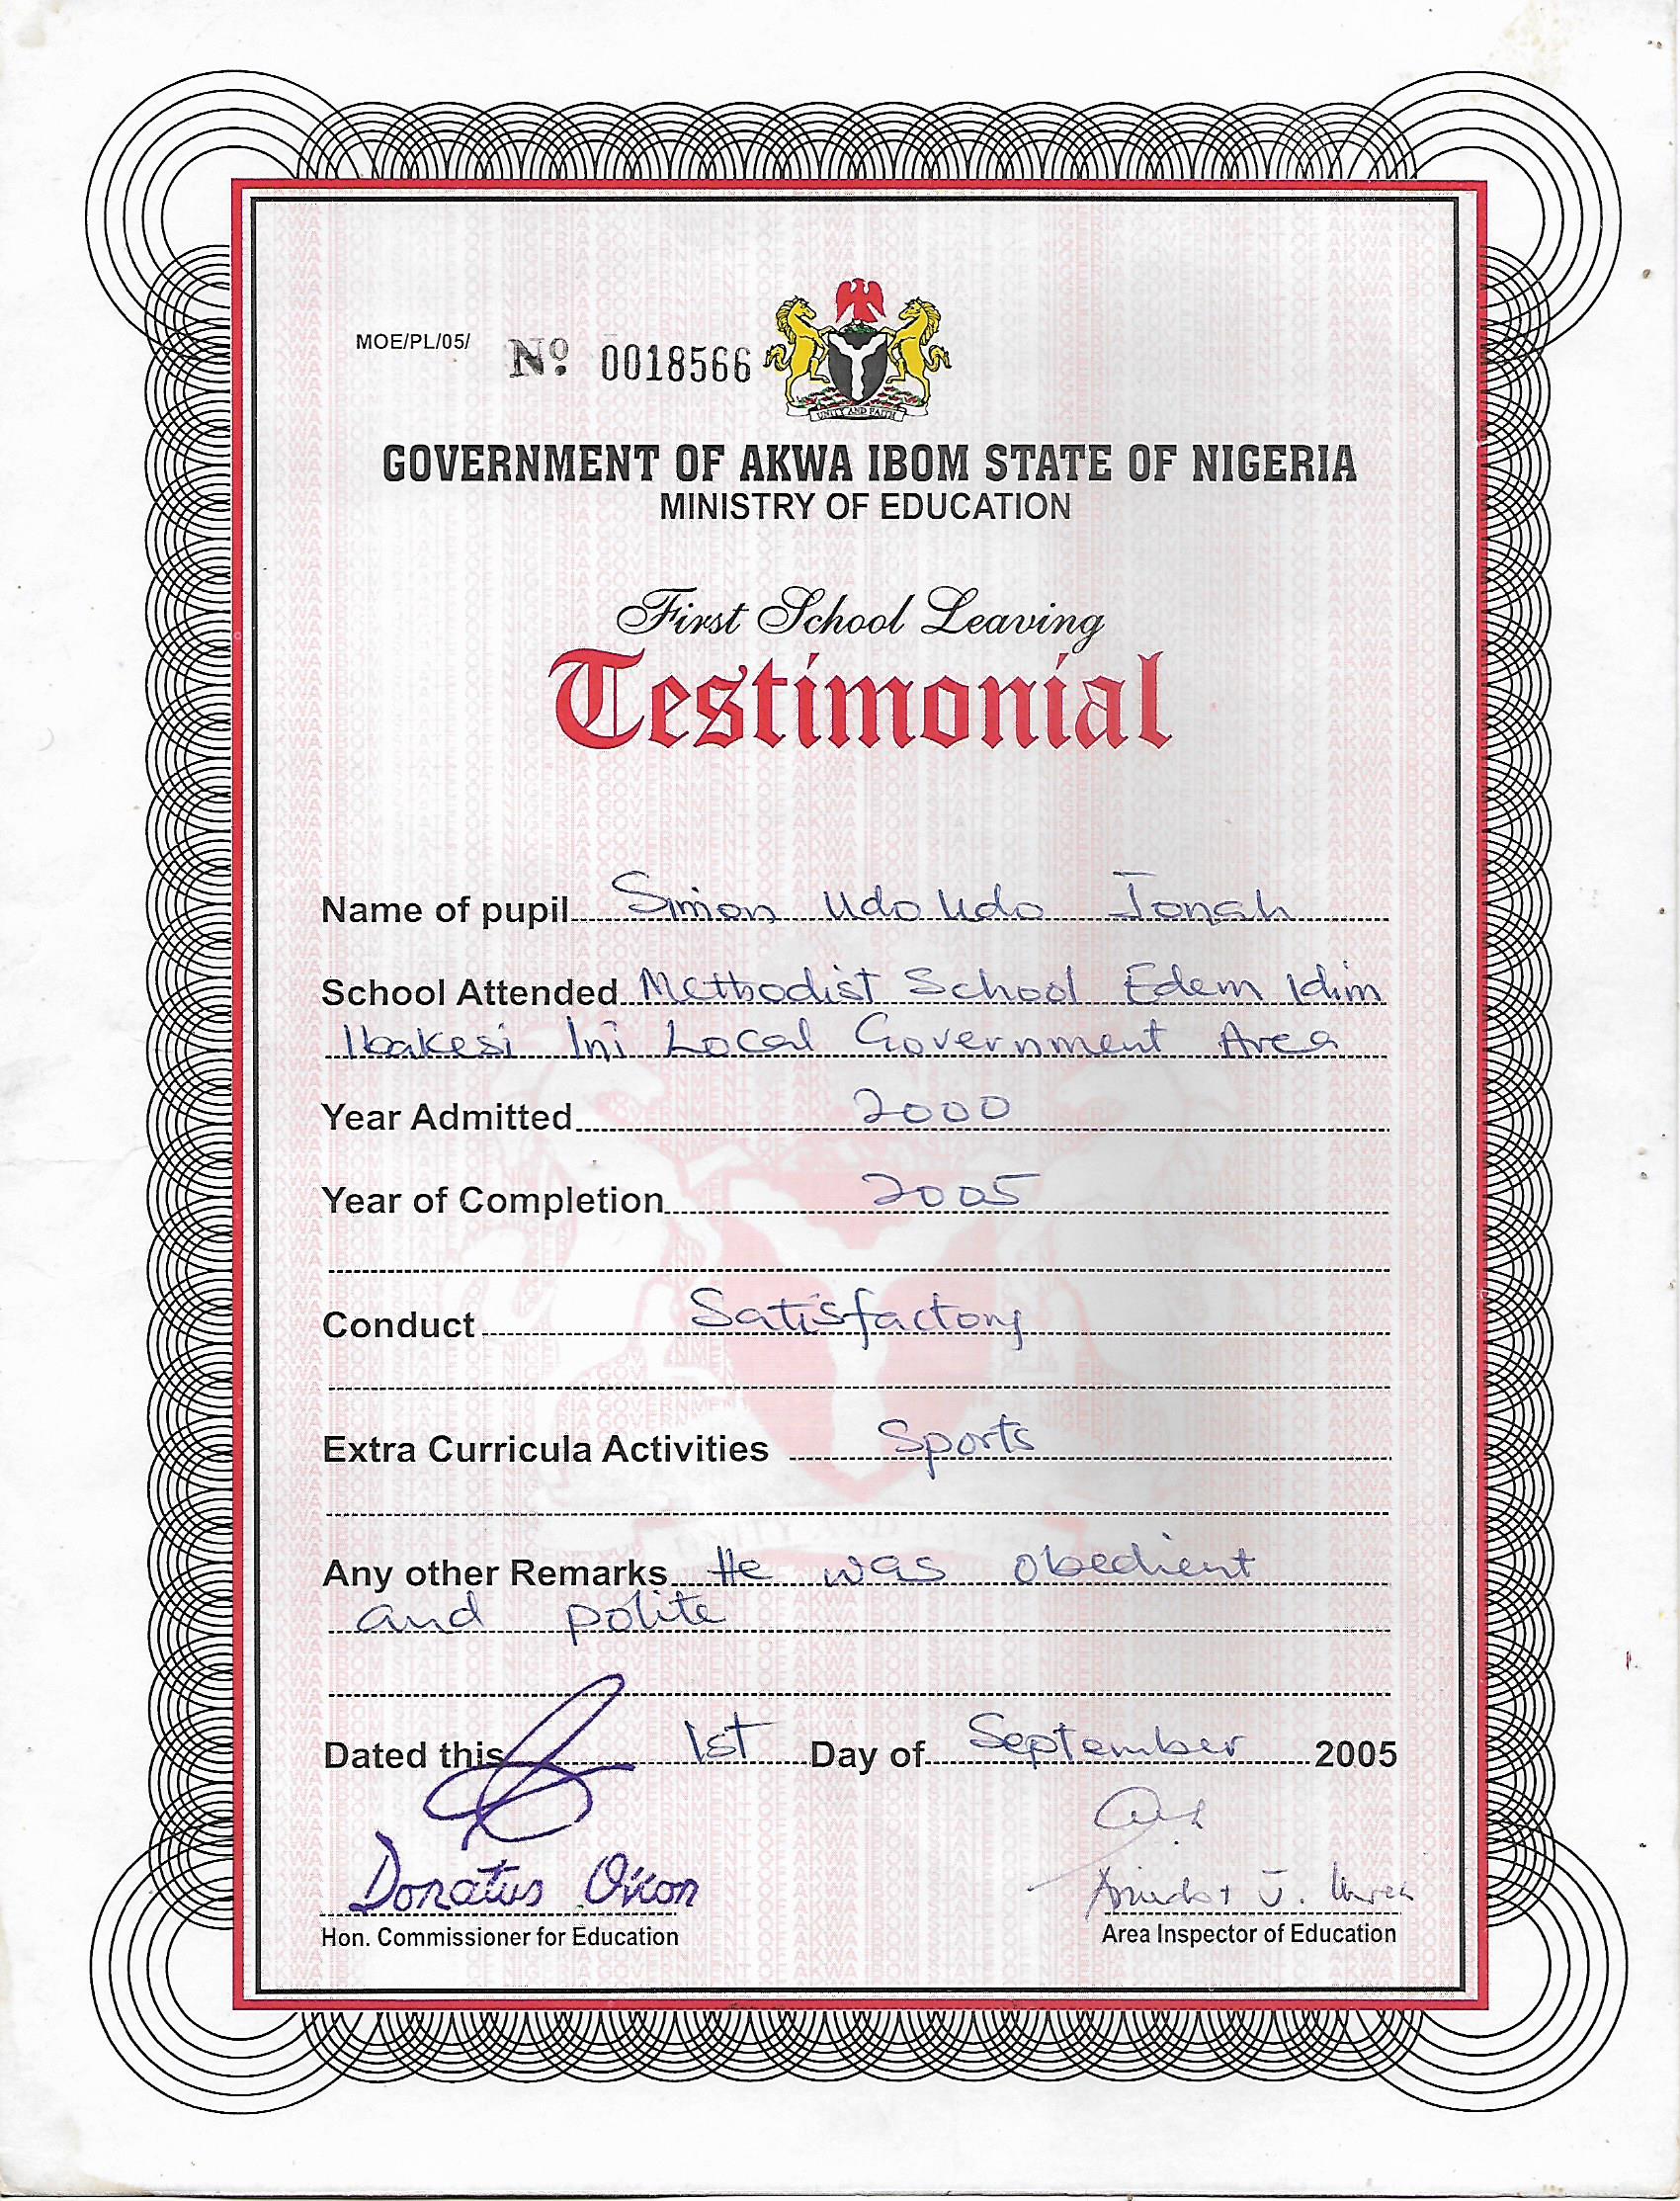 MOE/PL/05/ Nº 0018566
UNITY AND FAITH
GOVERNMENT OF AKWA IBOM STATE OF NIGERIA
MINISTRY OF EDUCATION
First School Leaving
Testimonial
Name of pupil Simon Udo Udo Jonah
School Attended Methodist School Edem Idim
Ibakesi Ini Local Government Area
Year Admitted 2000
Year of Completion 2005
Conduct Satisfactory
Extra Curricula Activities Sports
Any other Remarks He was obedient
and polite
Dated this 1st Day of September 2005
Donatus Okon J.
Hon. Commissioner for Education Area Inspector of Education